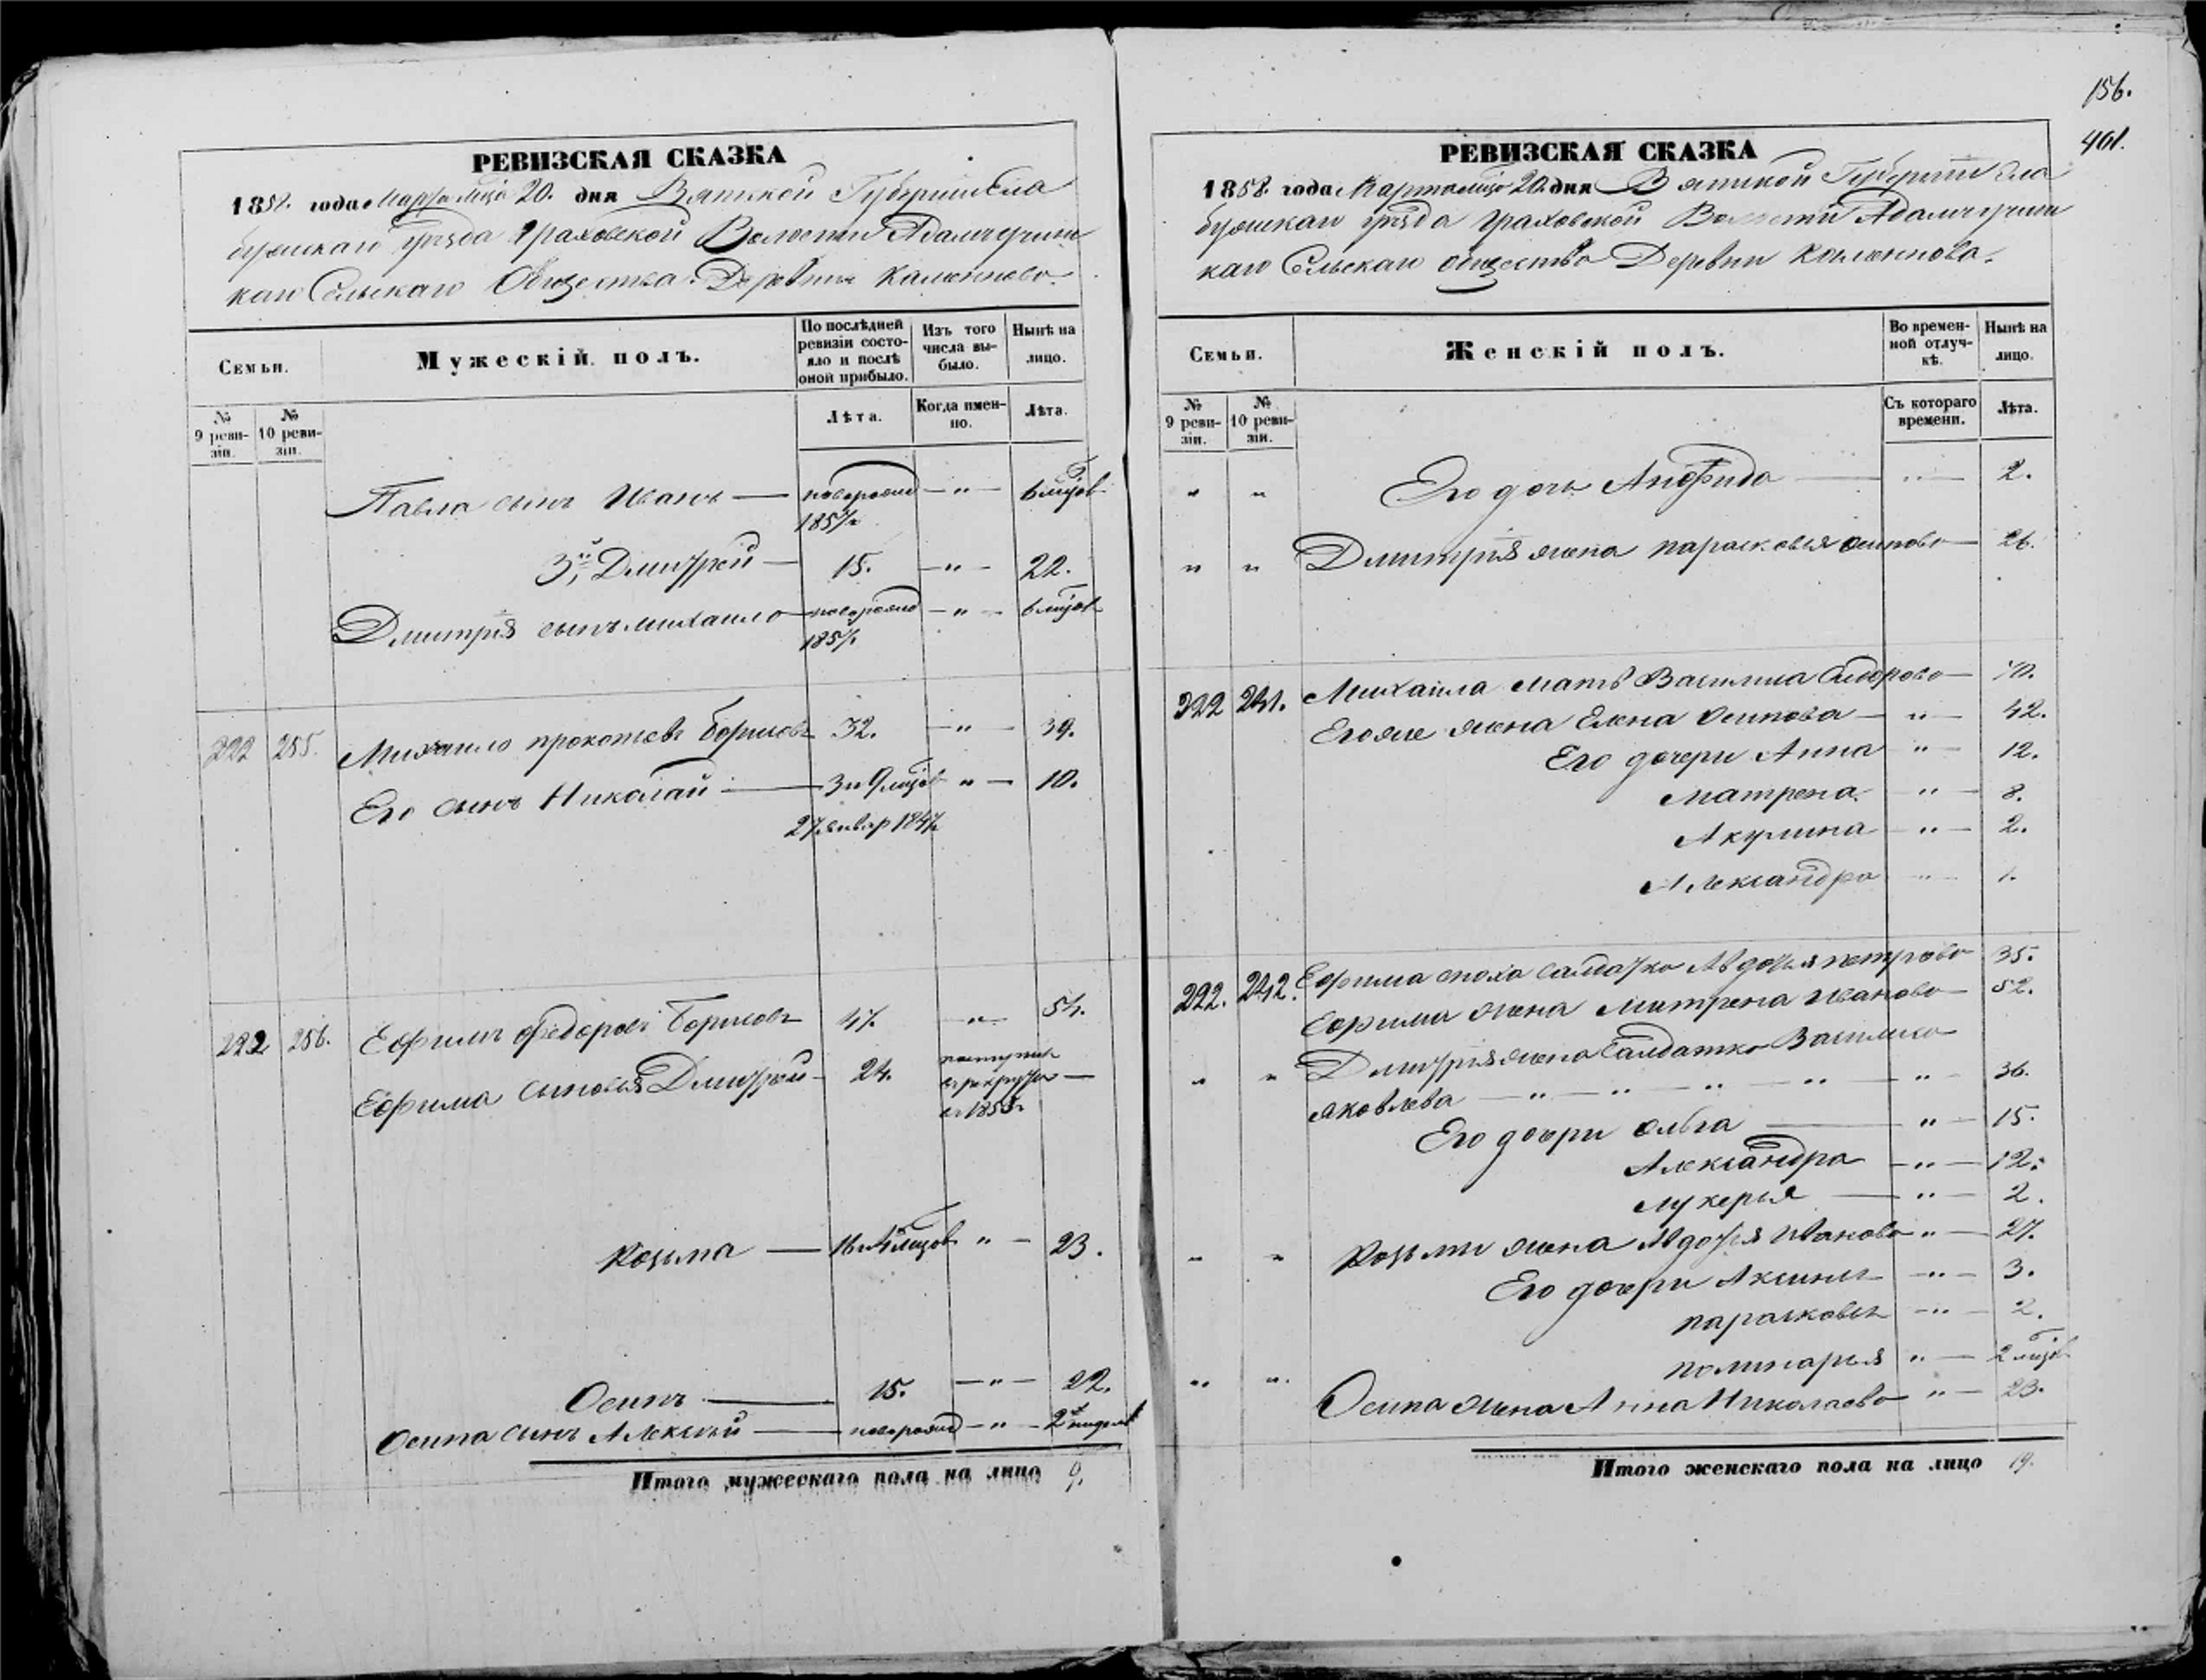 156.
461.
РЕВИЗСКАЯ СКАЗКА
1858. года Марта мѣсяца 20. дня Вятской Губерніи Ела
бужскаго уѣзда Граховской Волости Адамучин
каго Сельскаго Общества Деревни Каменново.
Семьи.
Мужескій полъ.
По послѣдней ревизіи состо-яло и послѣ оной прибыло.
Изъ того числа вы-было.
Нынѣ на лицо.
№ 9 реви-зіи.
№ 10 реви-зіи.
Лѣта.
Когда имен-но.
Лѣта.
Павла сынъ Иванъ — новорожд — " — 6 мцов
1857 г
3й Дмитрей — 15. — " — 22.
Дмитрія сынъ михаило — новорожд — " — 6 мцов
1857.
222 255. Михаило прокопьевъ Борисовъ 32. — " — 39.
Его сынъ Николай — 3 и 9 мцов " — 10.
27 январ 1847
222 256. Ефимъ федоровъ Борисовъ 47. — " — 54.
Ефима сыновья Дмитрей — 24. поступил в рекруты — в 1855 г
Козьма — 16 и 4 мцов " — 23.
Осипъ — 15. — " — 22.
Осипа сынъ Алексѣй — новорожд — " — 2 недели
Итого мужескаго пола на лицо 9.
РЕВИЗСКАЯ СКАЗКА
1858. года Марта мѣсяца 20. дня Вятской Губерніи Ела
бужскаго уѣзда Граховской Волости Адамучин
каго Сельскаго общества Деревни Каменнова.
Семьи.
Женскій полъ.
Во времен-ной отлуч-кѣ.
Нынѣ на лицо.
№ 9 реви-зіи.
№ 10 реви-зіи.
Съ котораго времени.
Лѣта.
" " Его дочь Анфида — " — 2.
" " Дмитрія жена парасковья осипова — 26.
222 241. Михаила мать Василиса Сидорова — 70.
Егоже жена Елена Осипова — " — 42.
Его дочери Анна " — 12.
матрена — " — 8.
Акулина — " — 2.
Александра — " — 1.
222. 242. Ефима сноха салдатка Авдотья петрова 35.
Ефима жена Матрена Иванова — 52.
" " Дмитрія жена Салдатка Василиса
яковлева — " — " — " — " — " — 36.
Его дочери ольга — " — 15.
Александра — " — 12.
лукерья — " — 2.
" " Козьмы жена Авдотья Иванова " — 27.
Его дочери Аксинья — " — 3.
парасковья — " — 2.
полинарья " — 2 мцов
" " Осипа жена Анна Николаева " — 23.
Итого женскаго пола на лицо 19.